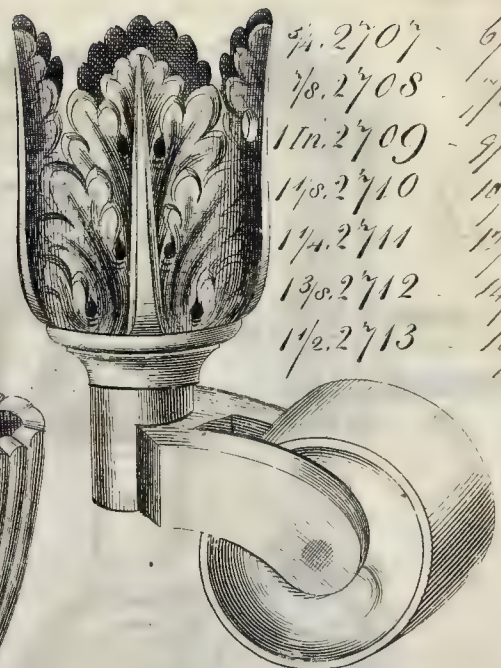 3/4. 2707 - 6
7/8. 2708 -
1 In. 2709 - 9
1 1/8. 2710
1 1/4. 2711
1 3/8. 2712 -
1 1/2. 2713 -